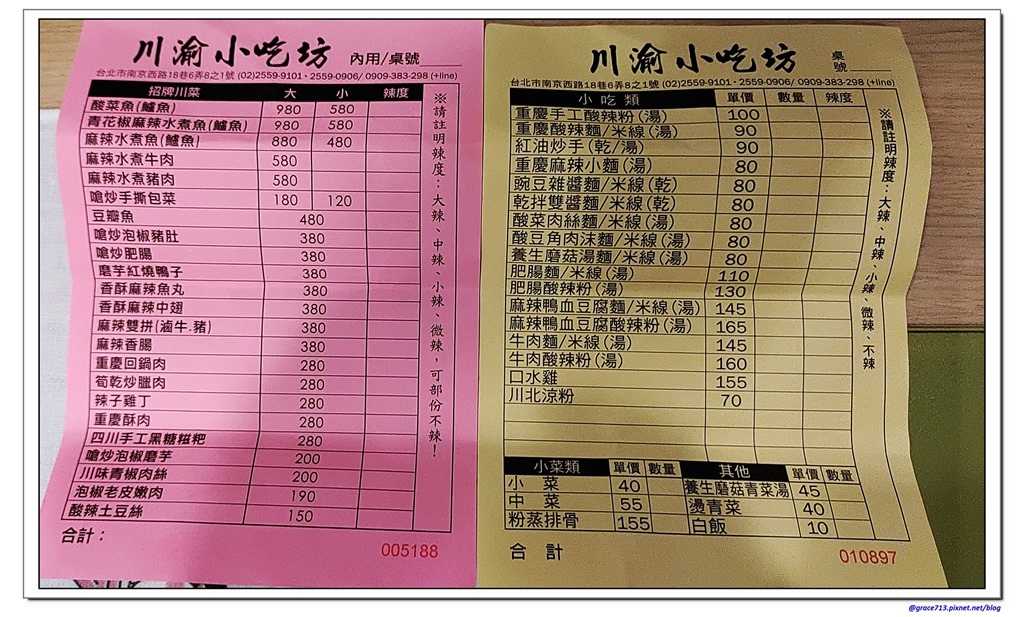 川渝小吃坊 內用/桌號
台北市南京西路18巷6弄8之1號 (02)2559-9101・2559-0906/ 0909-383-298 (+line)
招牌川菜 大 小 辣度
酸菜魚(鱸魚) 980 580
青花椒麻辣水煮魚(鱸魚) 980 580
麻辣水煮魚(鱸魚) 880 480
麻辣水煮牛肉 580
麻辣水煮豬肉 580
嗆炒手撕包菜 180 120
豆瓣魚 480
嗆炒泡椒豬肚 380
嗆炒肥腸 380
磨芋紅燒鴨子 380
香酥麻辣魚丸 380
香酥麻辣中翅 380
麻辣雙拼(滷牛.豬) 380
麻辣香腸 380
重慶回鍋肉 280
筍乾炒臘肉 280
辣子雞丁 280
重慶酥肉 280
四川手工黑糖糍粑 280
嗆炒泡椒磨芋 200
川味青椒肉絲 200
泡椒老皮嫩肉 190
酸辣土豆絲 150
※請註明辣度：大辣、中辣、小辣、微辣，可部份不辣！
合計：
005188
川渝小吃坊 桌號
台北市南京西路18巷6弄8之1號 (02)2559-9101・2559-0906/ 0909-383-298 (+line)
小吃類 單價 數量 辣度
重慶手工酸辣粉(湯) 100
重慶酸辣麵/米線(湯) 90
紅油炒手(乾/湯) 90
重慶麻辣小麵(湯) 80
豌豆雜醬麵/米線(乾) 80
乾拌雙醬麵/米線(乾) 80
酸菜肉絲麵/米線(湯) 80
酸豆角肉沫麵/米線(湯) 80
養生磨菇湯麵/米線(湯) 80
肥腸麵/米線(湯) 110
肥腸酸辣粉(湯) 130
麻辣鴨血豆腐麵/米線(湯) 145
麻辣鴨血豆腐酸辣粉(湯) 165
牛肉麵/米線(湯) 145
牛肉酸辣粉(湯) 160
口水雞 155
川北涼粉 70
※請註明辣度：大辣、中辣、小辣、微辣、不辣
小菜類 單價 數量 其他 單價 數量
小 菜 40 養生磨菇青菜湯 45
中 菜 55 燙青菜 40
粉蒸排骨 155 白飯 10
合 計
010897
@grace713.pixnet.net/blog